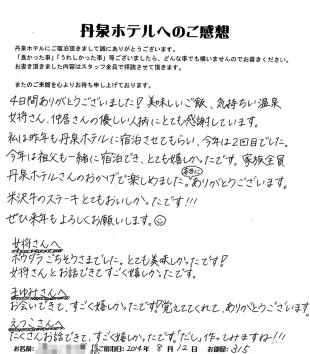 丹泉ホテルへのご感想
丹泉ホテルにご宿泊頂きまして誠にありがとうございます。
「良かった事」「うれしかった事」等ございましたら、どんな事でも構いませんのでお書きください。
お書き頂きました内容はスタッフ全員で拝読させて頂きます。
またのご来館を心よりお待ち申し上げております。
4日間ありがとうございました!美味しいご飯、気持ちい温泉
女将さん、仲居さんの優しい人柄にとても感謝しています。
私は昨年も丹泉ホテルに宿泊させてもらい、今年は2回目でした。
今年は祖父も一緒に宿泊でき、とても嬉しかったです。家族全員
丹泉ホテルさんのおかげで楽しめました。本当にありがとうございます。
米沢牛のステーキとてもおいしかったです!!!
ぜひ来年もよろしくお願いします。
女将さんへ
ボウダラごちそうさまでした。とても美味しかったです!
女将さんとお話できてすごく嬉しかったです。
まゆみさんへ
お会いできて、すごく嬉しかったです!覚えててくれて、ありがとうございます
えつこさんへ
たくさんお話できて、すごく嬉しかったです。「だし」作ってみますねー!!!
お名前: 様 ご宿泊日: 2014年 8月 12日 お部屋: 315